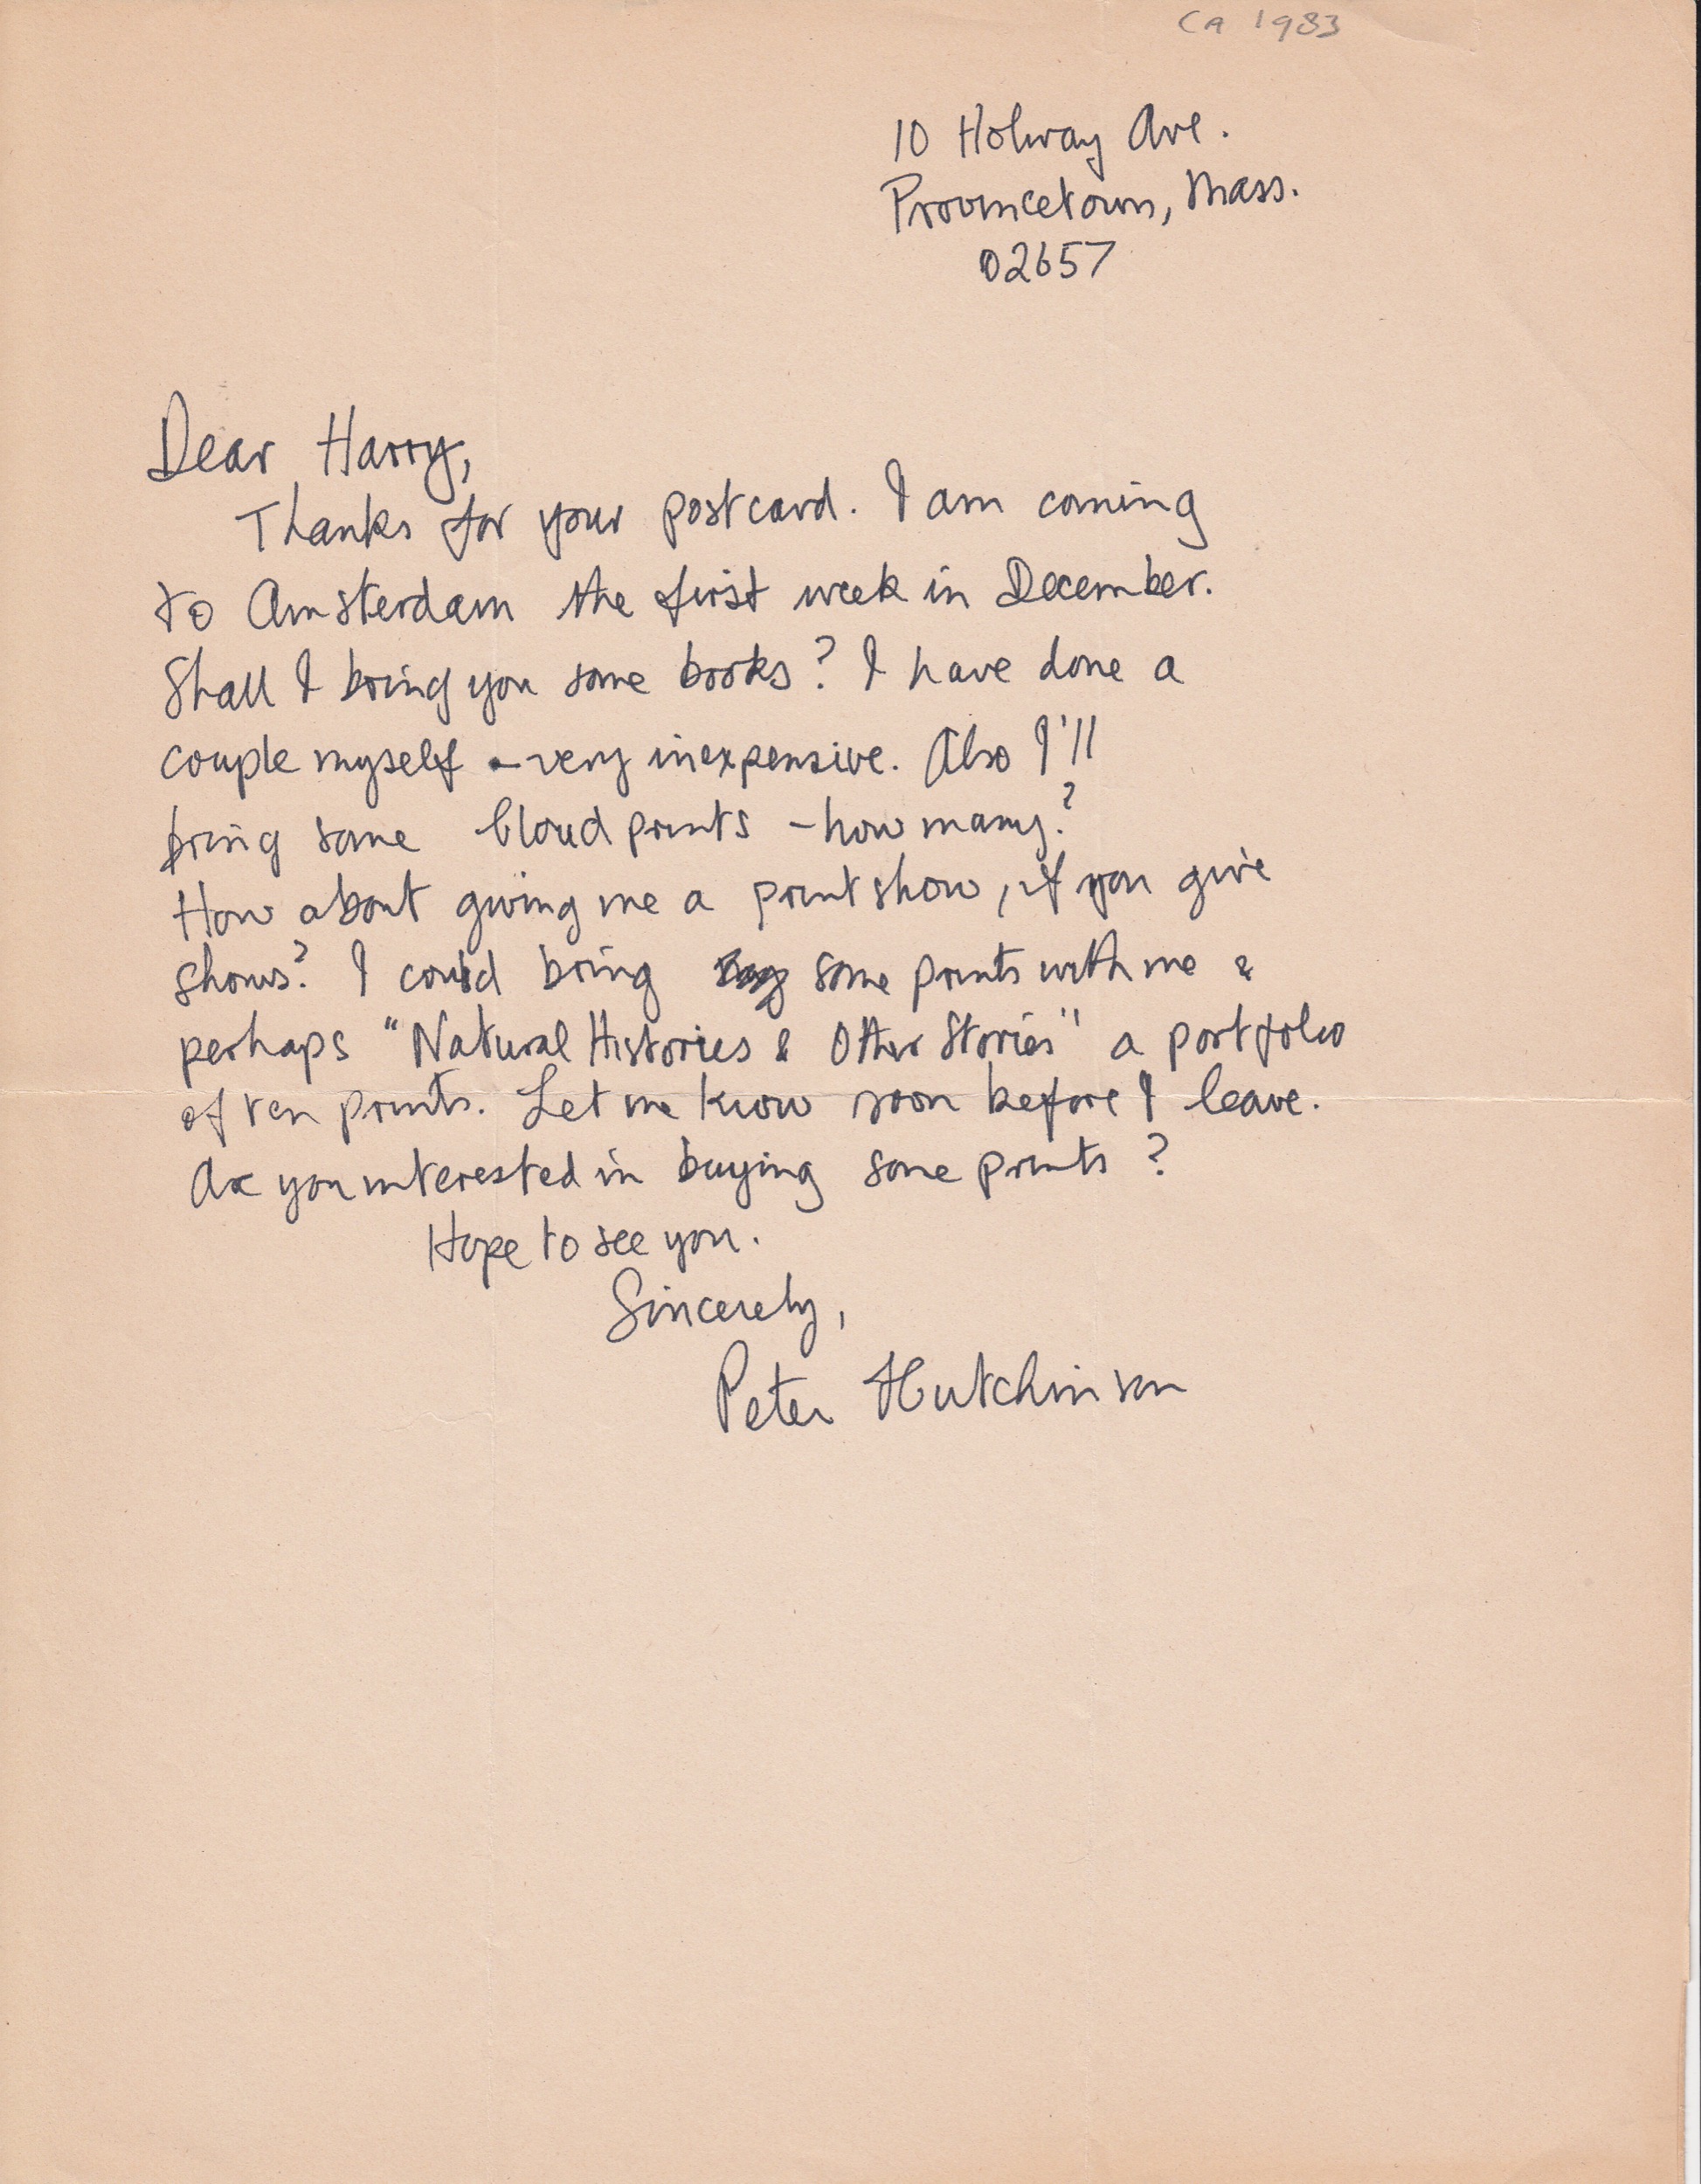 CA 1983
10 Holway Ave.
Provincetown, Mass.
02657
Dear Harry,
Thanks for your postcard. I am coming
to Amsterdam the first week in December.
Shall I bring you some books? I have done a
couple myself - very inexpensive. Also I'll
bring some cloud prints - how many?
How about giving me a print show, if you give
shows? I could bring some prints with me &
perhaps "Natural Histories & Other Stories" a portfolio
of ten prints. Let me know soon before I leave.
Are you interested in buying some prints?
Hope to see you.
Sincerely,
Peter Hutchinson